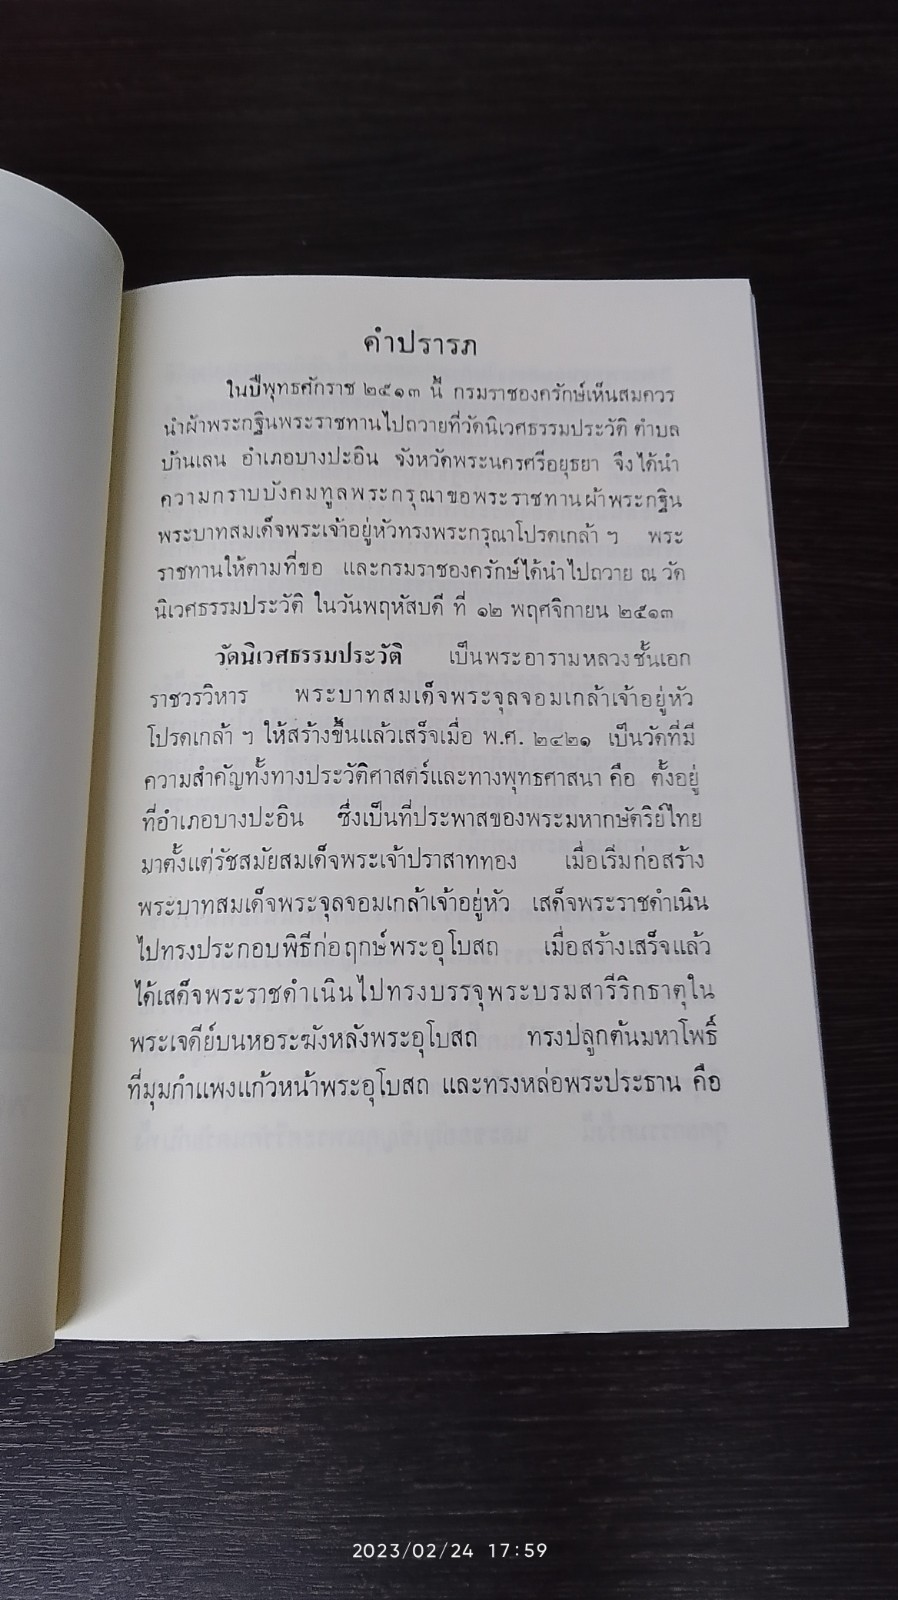 คำปรารภ
ในปีพุทธศักราช ๒๕๑๓ นี้ กรมราชองครักษ์เห็นสมควร
นำผ้าพระกฐินพระราชทานไปถวายที่วัดนิเวศธรรมประวัติ ตำบล
บ้านเลน อำเภอบางปะอิน จังหวัดพระนครศรีอยุธยา จึงได้นำ
ความกราบบังคมทูลพระกรุณาขอพระราชทานผ้าพระกฐิน
พระบาทสมเด็จพระเจ้าอยู่หัวทรงพระกรุณาโปรดเกล้า ฯ พระ
ราชทานให้ตามที่ขอ และกรมราชองครักษ์ได้นำไปถวาย ณ วัด
นิเวศธรรมประวัติ ในวันพฤหัสบดี ที่ ๑๒ พฤศจิกายน ๒๕๑๓
วัดนิเวศธรรมประวัติ เป็นพระอารามหลวงชั้นเอก
ราชวรวิหาร พระบาทสมเด็จพระจุลจอมเกล้าเจ้าอยู่หัว
โปรดเกล้า ฯ ให้สร้างขึ้นแล้วเสร็จเมื่อ พ.ศ. ๒๔๒๑ เป็นวัดที่มี
ความสำคัญทั้งทางประวัติศาสตร์และทางพุทธศาสนา คือ ตั้งอยู่
ที่อำเภอบางปะอิน ซึ่งเป็นที่ประพาสของพระมหากษัตริย์ไทย
มาตั้งแต่รัชสมัยสมเด็จพระเจ้าปราสาททอง เมื่อเริ่มก่อสร้าง
พระบาทสมเด็จพระจุลจอมเกล้าเจ้าอยู่หัว เสด็จพระราชดำเนิน
ไปทรงประกอบพิธีก่อฤกษ์พระอุโบสถ เมื่อสร้างเสร็จแล้ว
ได้เสด็จพระราชดำเนินไปทรงบรรจุพระบรมสารีริกธาตุใน
พระเจดีย์บนหอระฆังหลังพระอุโบสถ ทรงปลูกต้นมหาโพธิ์
ที่มุมกำแพงแก้วหน้าพระอุโบสถ และทรงหล่อพระประธาน คือ
2023/02/24 17:59